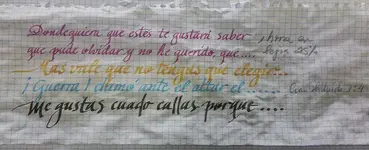 Dondequiera que estés te gustará saber
que pude olvidar y no he querido, que....
Mas vale que no tengas que elegir...
¡Guerra! clamó ante el altar el
Me gustas cuado callas porque....